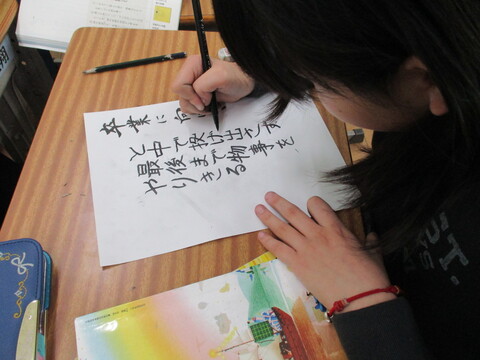 卒業に向
と中で投げ出さず
最後まで物事を
やりきる